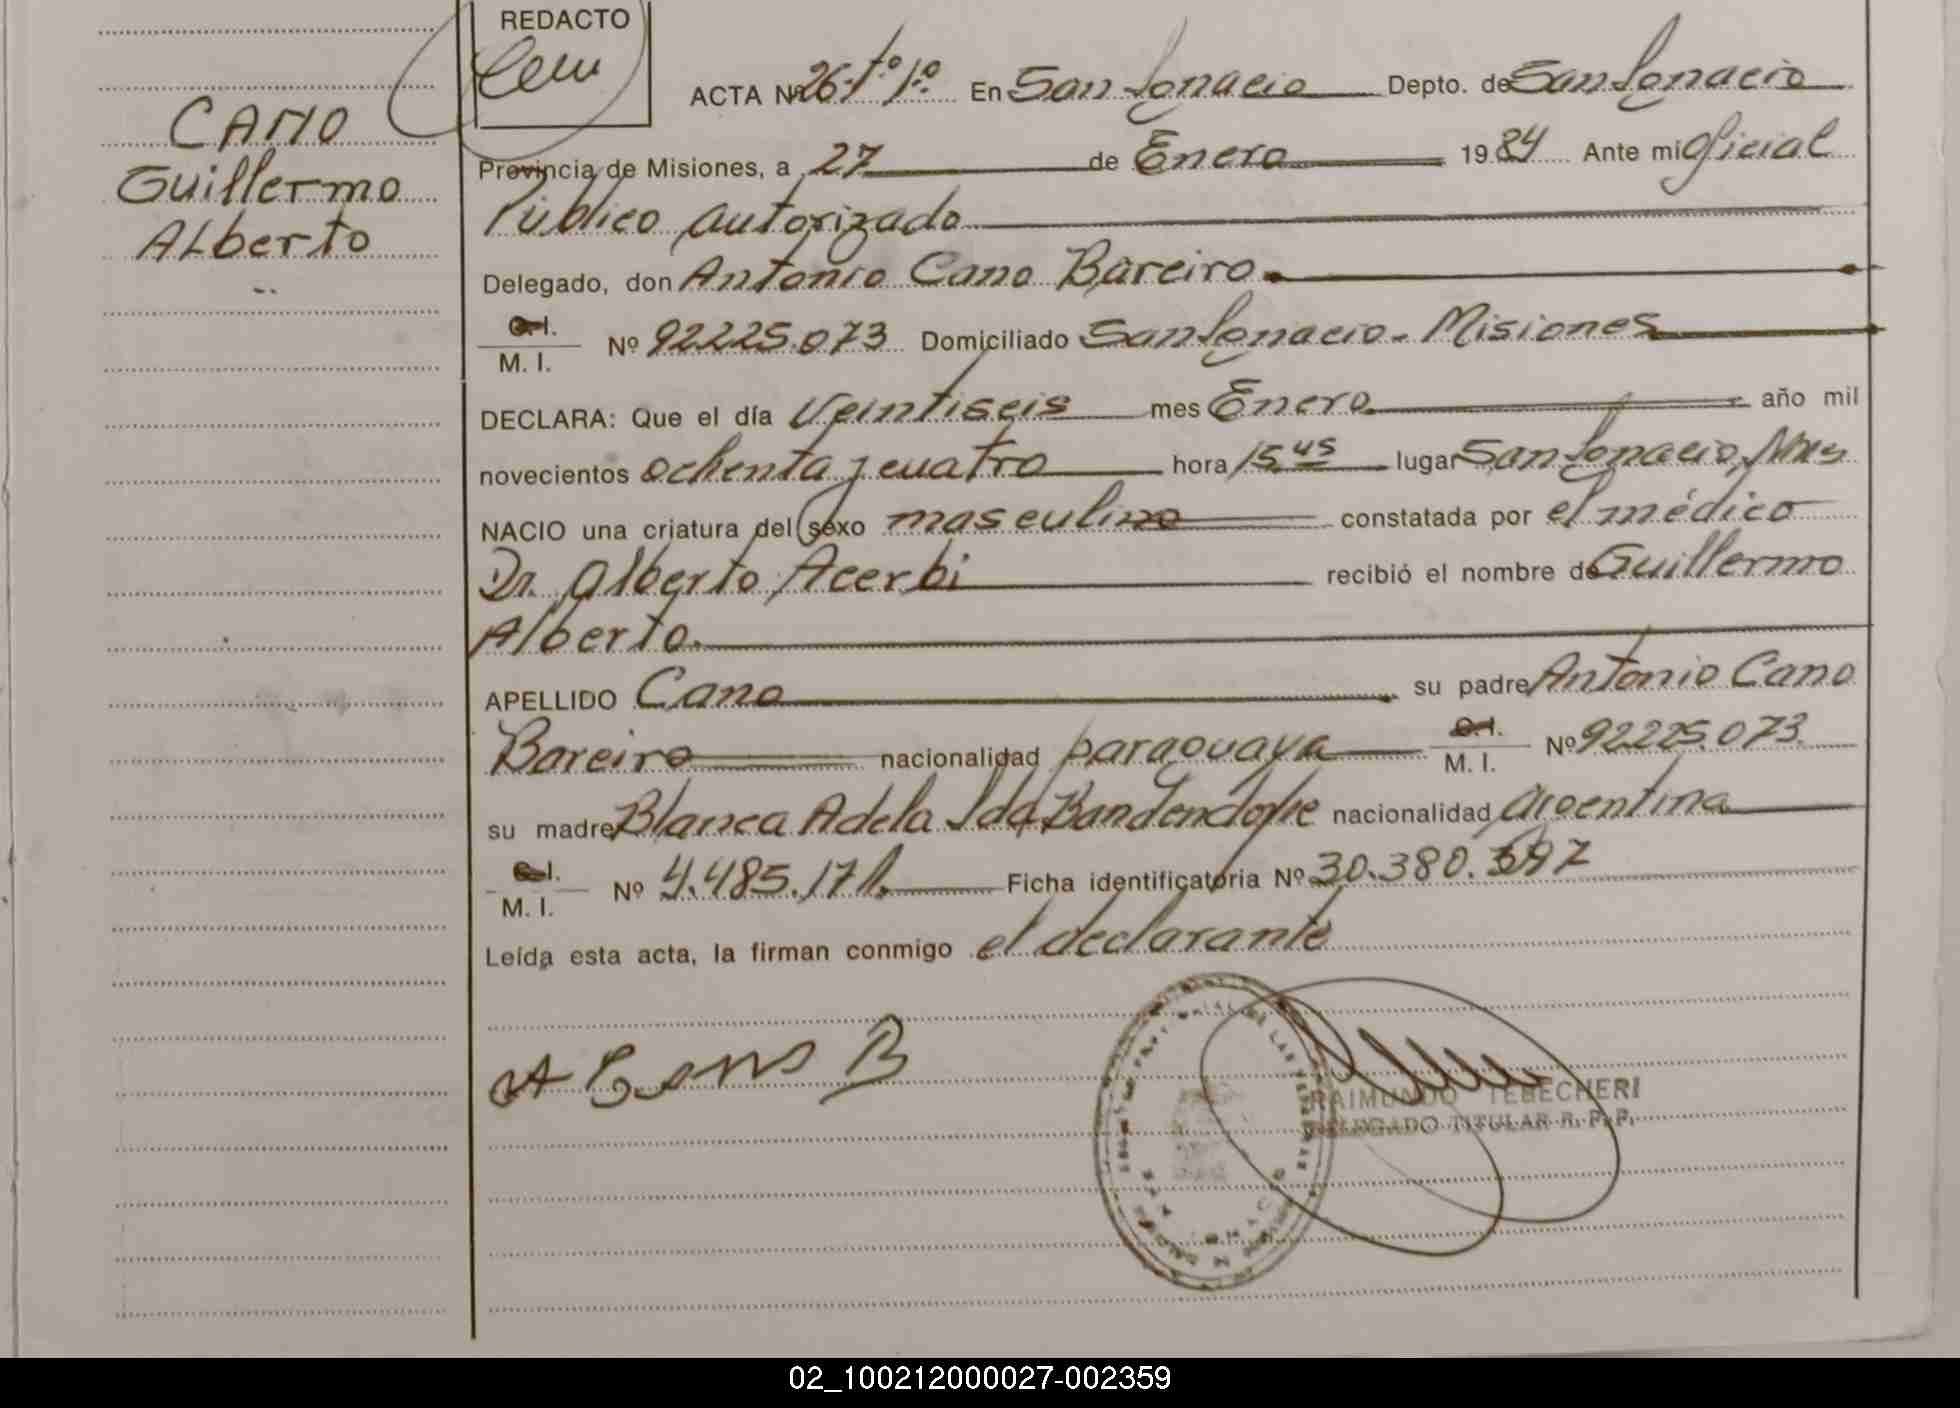 REDACTO
CANO
Guillermo
Alberto
ACTA Nº 26-Tº1º En San Ignacio Depto. de San Ignacio
Provincia de Misiones, a 27 de Enero 1984 Ante mi Oficial
Público autorizado
Delegado, don Antonio Cano Bareiro
C.I.
M. I. Nº 92225.073 Domiciliado San Ignacio - Misiones
DECLARA: Que el día Veintiseis mes Enero año mil
novecientos ochenta y cuatro hora 15.45 lugar San Ignacio, Mnes
NACIO una criatura del sexo masculino constatada por el médico
Dr. Alberto Acerbi recibió el nombre de Guillermo
Alberto.
APELLIDO Cano su padre Antonio Cano
Bareiro nacionalidad paraguaya C.I. M. I. Nº 92225.073
su madre Blanca Adela Ida nacionalidad argentina
C.I.
M. I. Nº 4.485.171. Ficha identificatoria Nº 30.380.
Leída esta acta, la firman conmigo el declarante
A Cano B
RAIMUNDO TEBECHERI
DELEGADO TITULAR R. P. P.
02_100212000027-002359